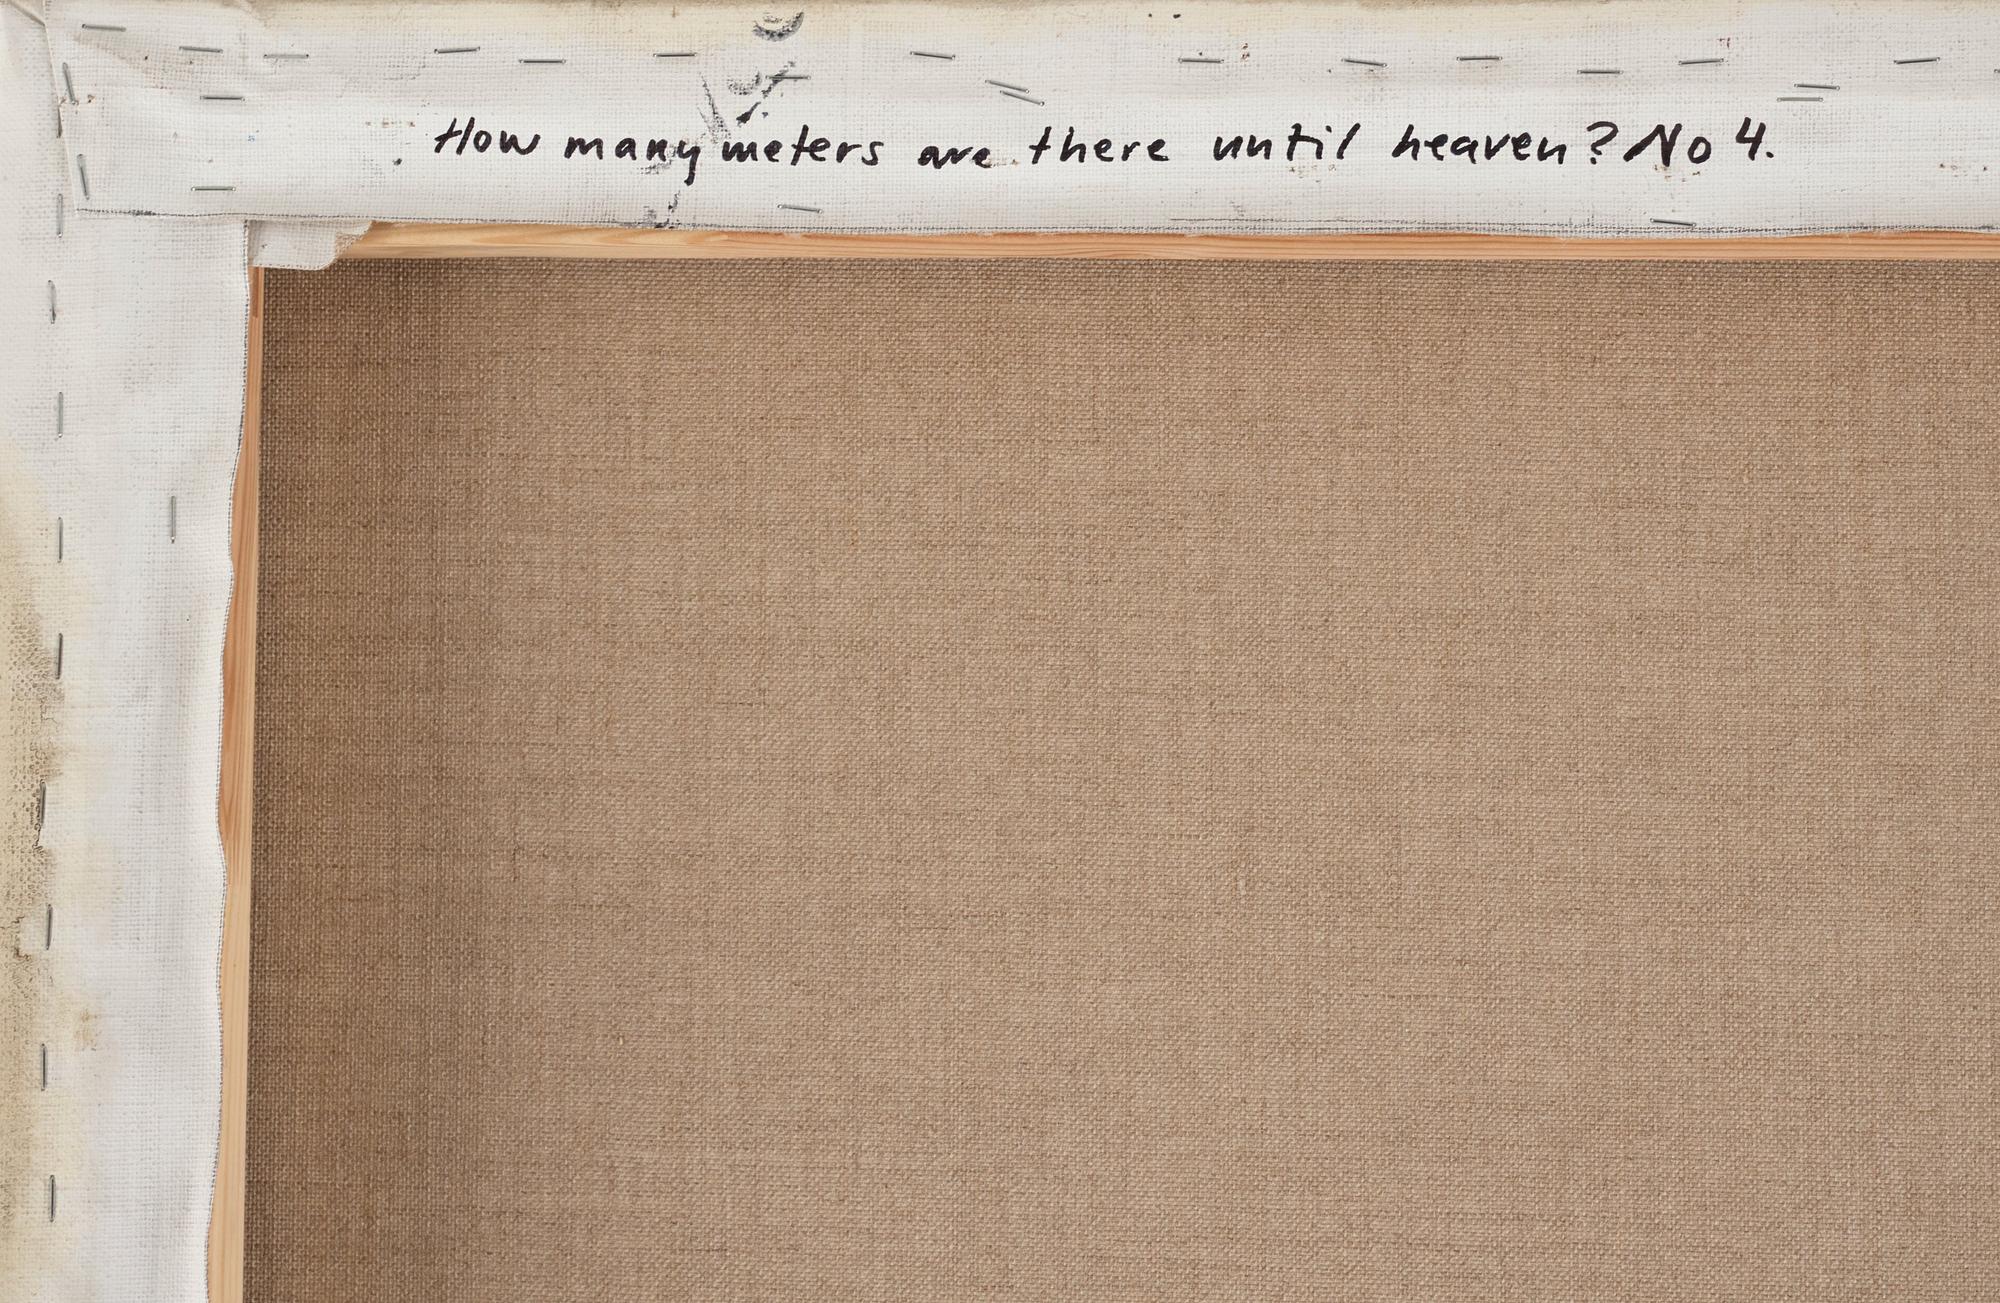 How many meters are there until heaven? No 4.